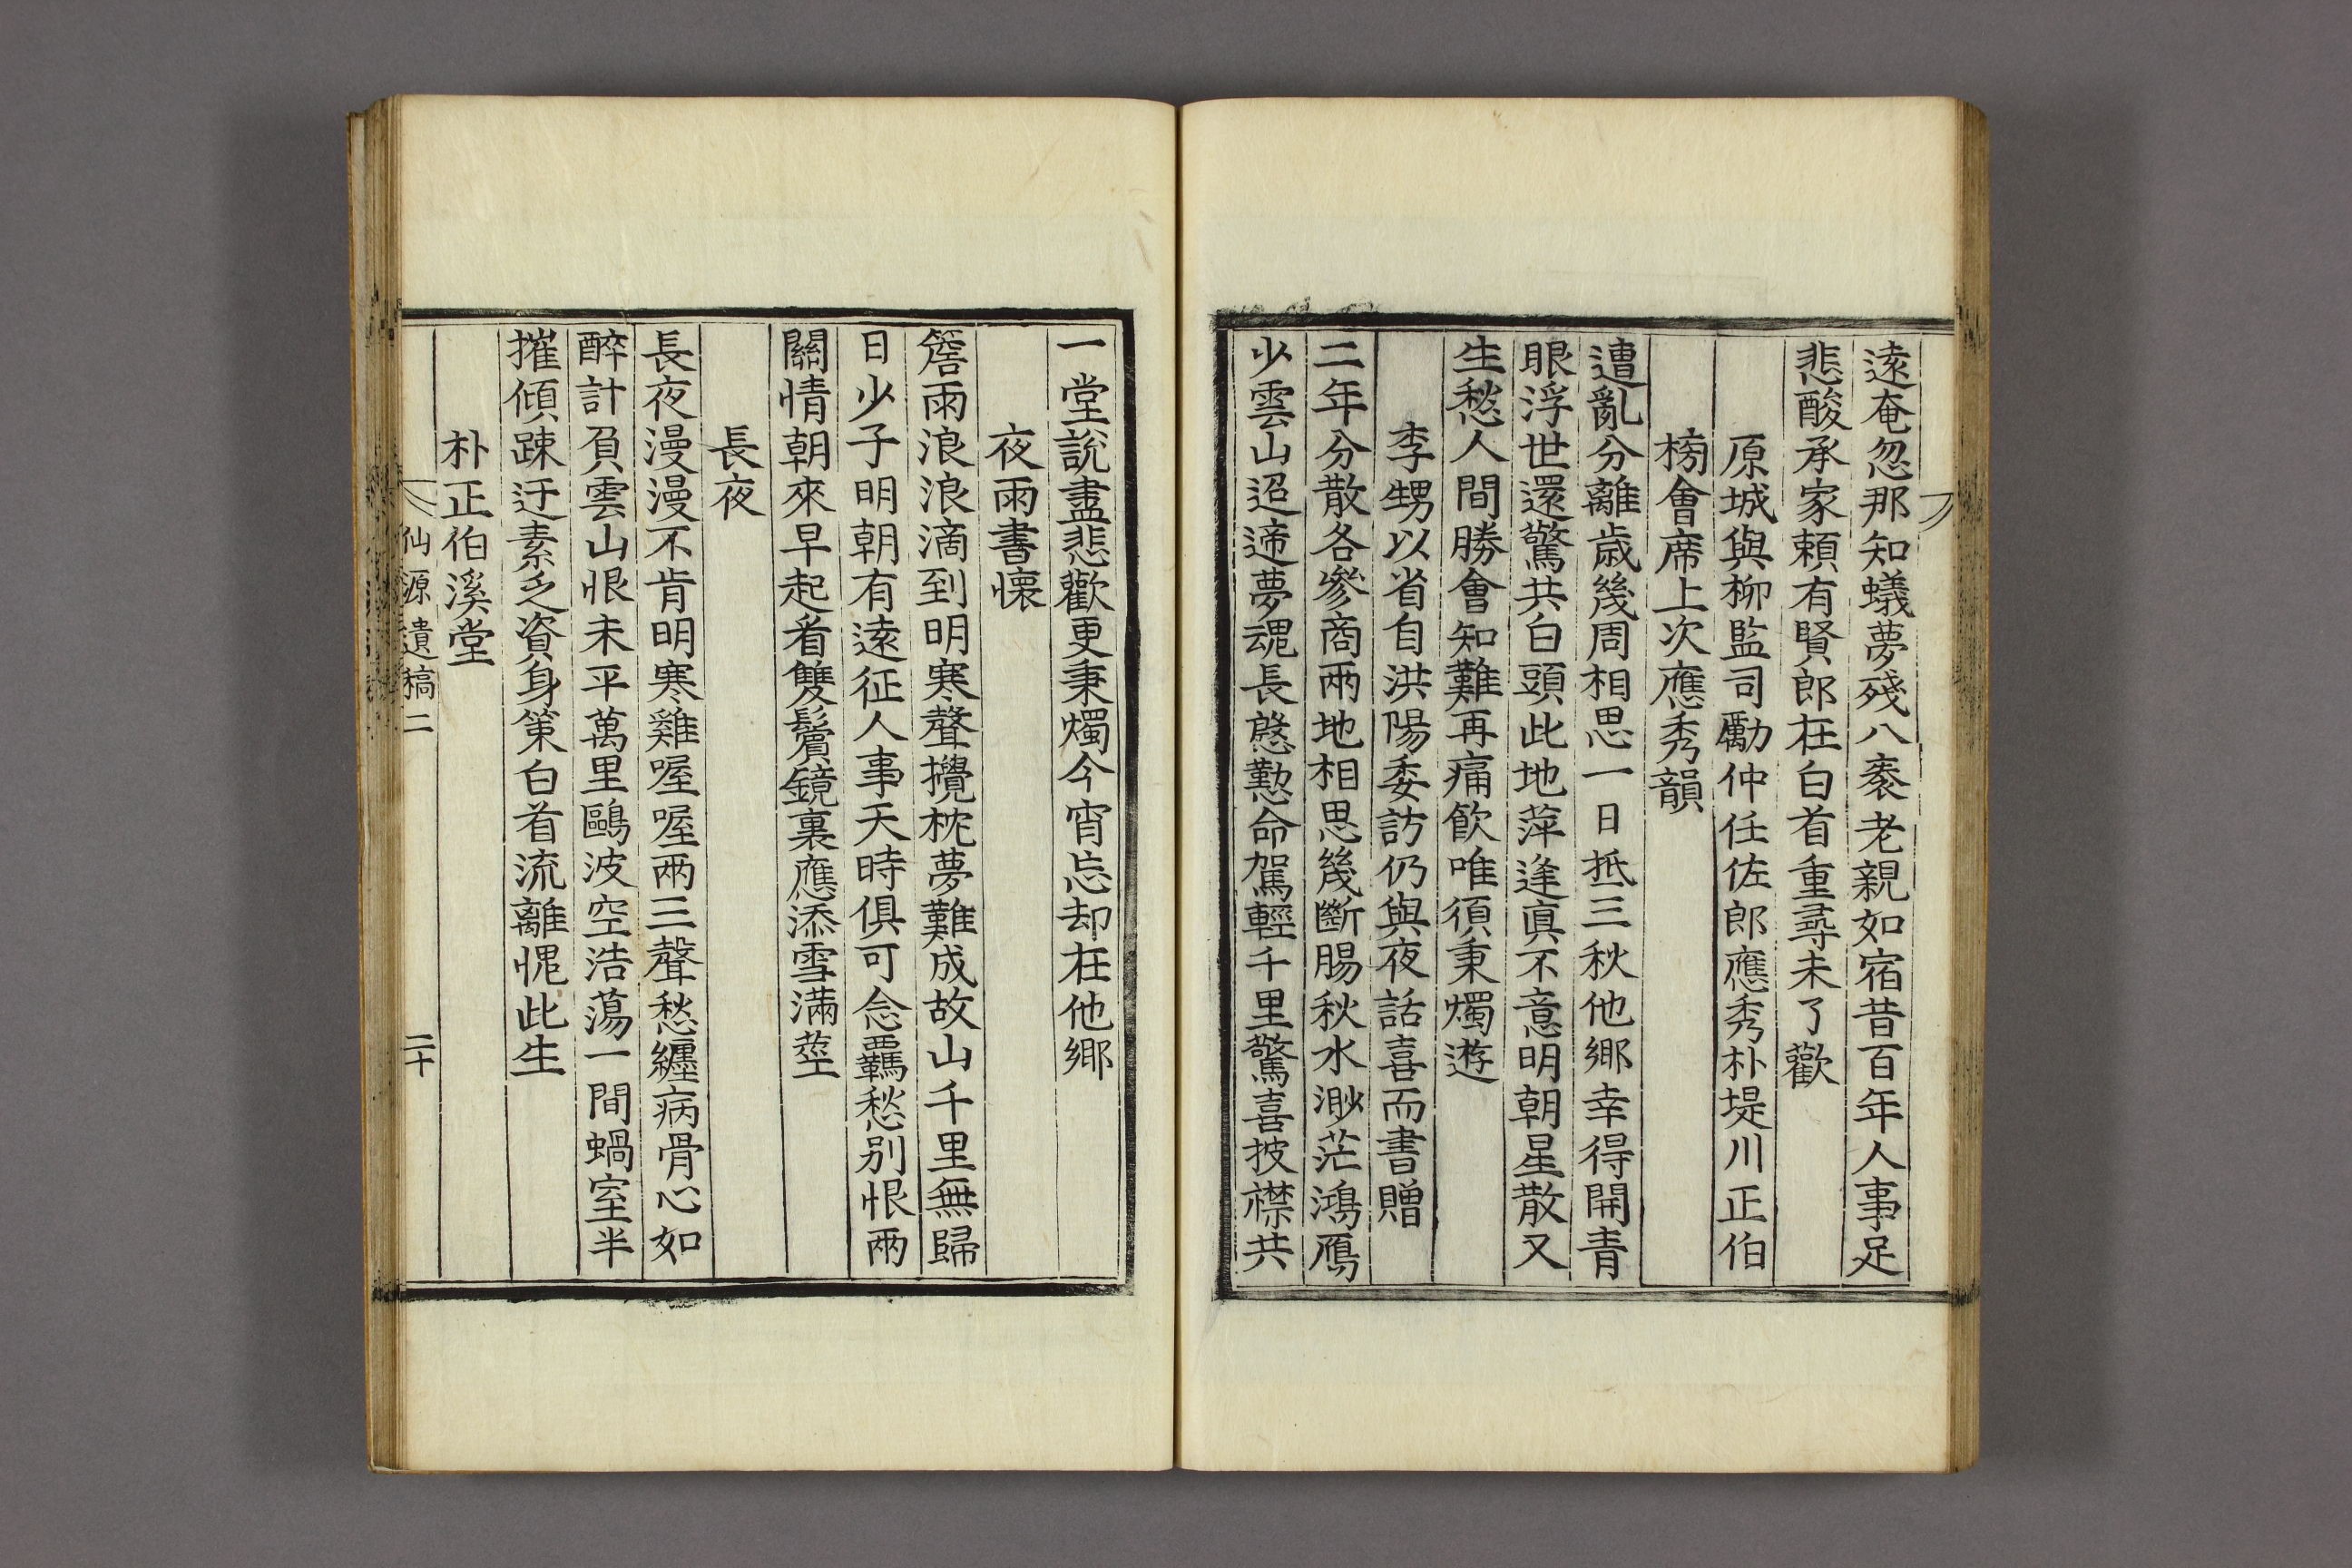 遠奄忽那知蟻夢殘八袠老親如宿昔百年人事足
悲酸承家頼有賢郎在白首重尋未了歡
原城與柳監司勵仲任佐郎應秀朴堤川正伯
榜會席上次應秀韻
遭亂分離歳幾周相思一日抵三秋他鄉幸得開青
眼浮世還驚共白頭此地萍逢眞不意明朝星散又
生愁人間勝會知難再痛飮唯須秉燭遊
李甥以省自洪陽委訪仍與夜話喜而書贈
二年分散各參商兩地相思幾斷腸秋水渺茫鴻鴈
少雲山迢遞夢魂長慇懃命駕輕千里驚喜披襟共
一堂說盡悲歡更秉燭今宵忘却在他鄉
夜雨書懷
簷雨浪浪滴到明寒聲攪枕夢難成故山千里無歸
日少子明朝有遠征人事天時俱可念羈愁別恨兩
關情朝來早起看雙鬢鏡裏應添雪滿莖
長夜
長夜漫漫不肯明寒雞喔喔兩三聲愁纏病骨心如
醉計負雲山恨未平萬里鷗波空浩蕩一間蝸室半
摧傾踈迂素乏資身策白首流離愧此生
朴正伯溪堂
仙源遺稿二 二十